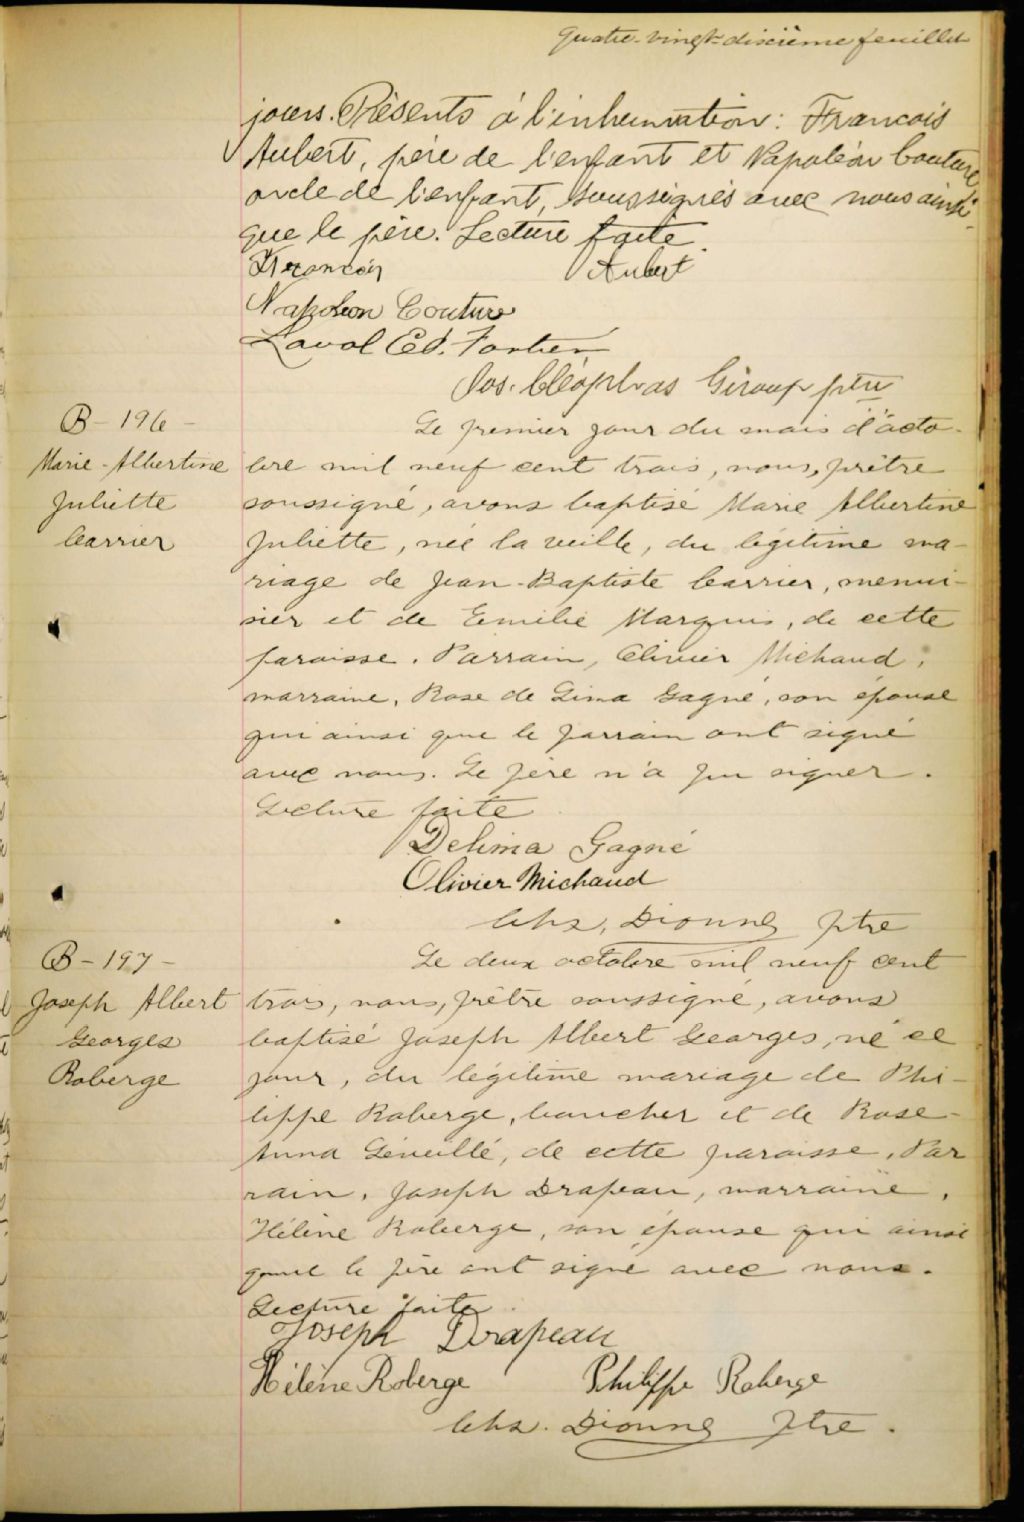 Quatre-vingt-dixième feuillet
jours. Présents à l'inhumation: Francois
Aubert, père de l'enfant et Napoléon Couture
oncle de l'enfant, soussignés avec nous ainsi
que le père. Lecture faite.
François Aubert
Napoléon Couture
Laval Ed. Fortier
Jos. Cléophas Giroux ptre
B-196-
Marie-Albertine
Juliette
Carrier
Le premier jour du mois d'octo-
bre mil neuf cent trois, nous, prêtre
soussigné, avons baptisé Marie Albertine
Juliette, née la veille, du légitime ma-
riage de Jean-Baptiste Carrier, menui-
sier et de Emilie Marquis, de cette
paroisse. Parrain, Olivier Michaud,
marraine, Rose de Lima Gagné, son épouse
qui ainsi que le parrain ont signé
avec nous. Le père n'a pu signer.
Lecture faite
Delima Gagné
Olivier Michaud
Chs. Dionne ptre
B-197-
Joseph Albert
Georges
Roberge
Le deux octobre mil neuf cent
trois, nous, prêtre soussigné, avons
baptisé Joseph Albert Georges, né ce
jour, du légitime mariage de Phi-
lippe Roberge, boucher et de Rose-
Anna Léveillé, de cette paroisse. Par
rain, Joseph Drapeau, marraine,
Hélène Roberge, son épouse qui ainsi
que le père ont signé avec nous.
Lecture faite.
Joseph Drapeau
Hélène Roberge Philippe Roberge
Chs. Dionne ptre.